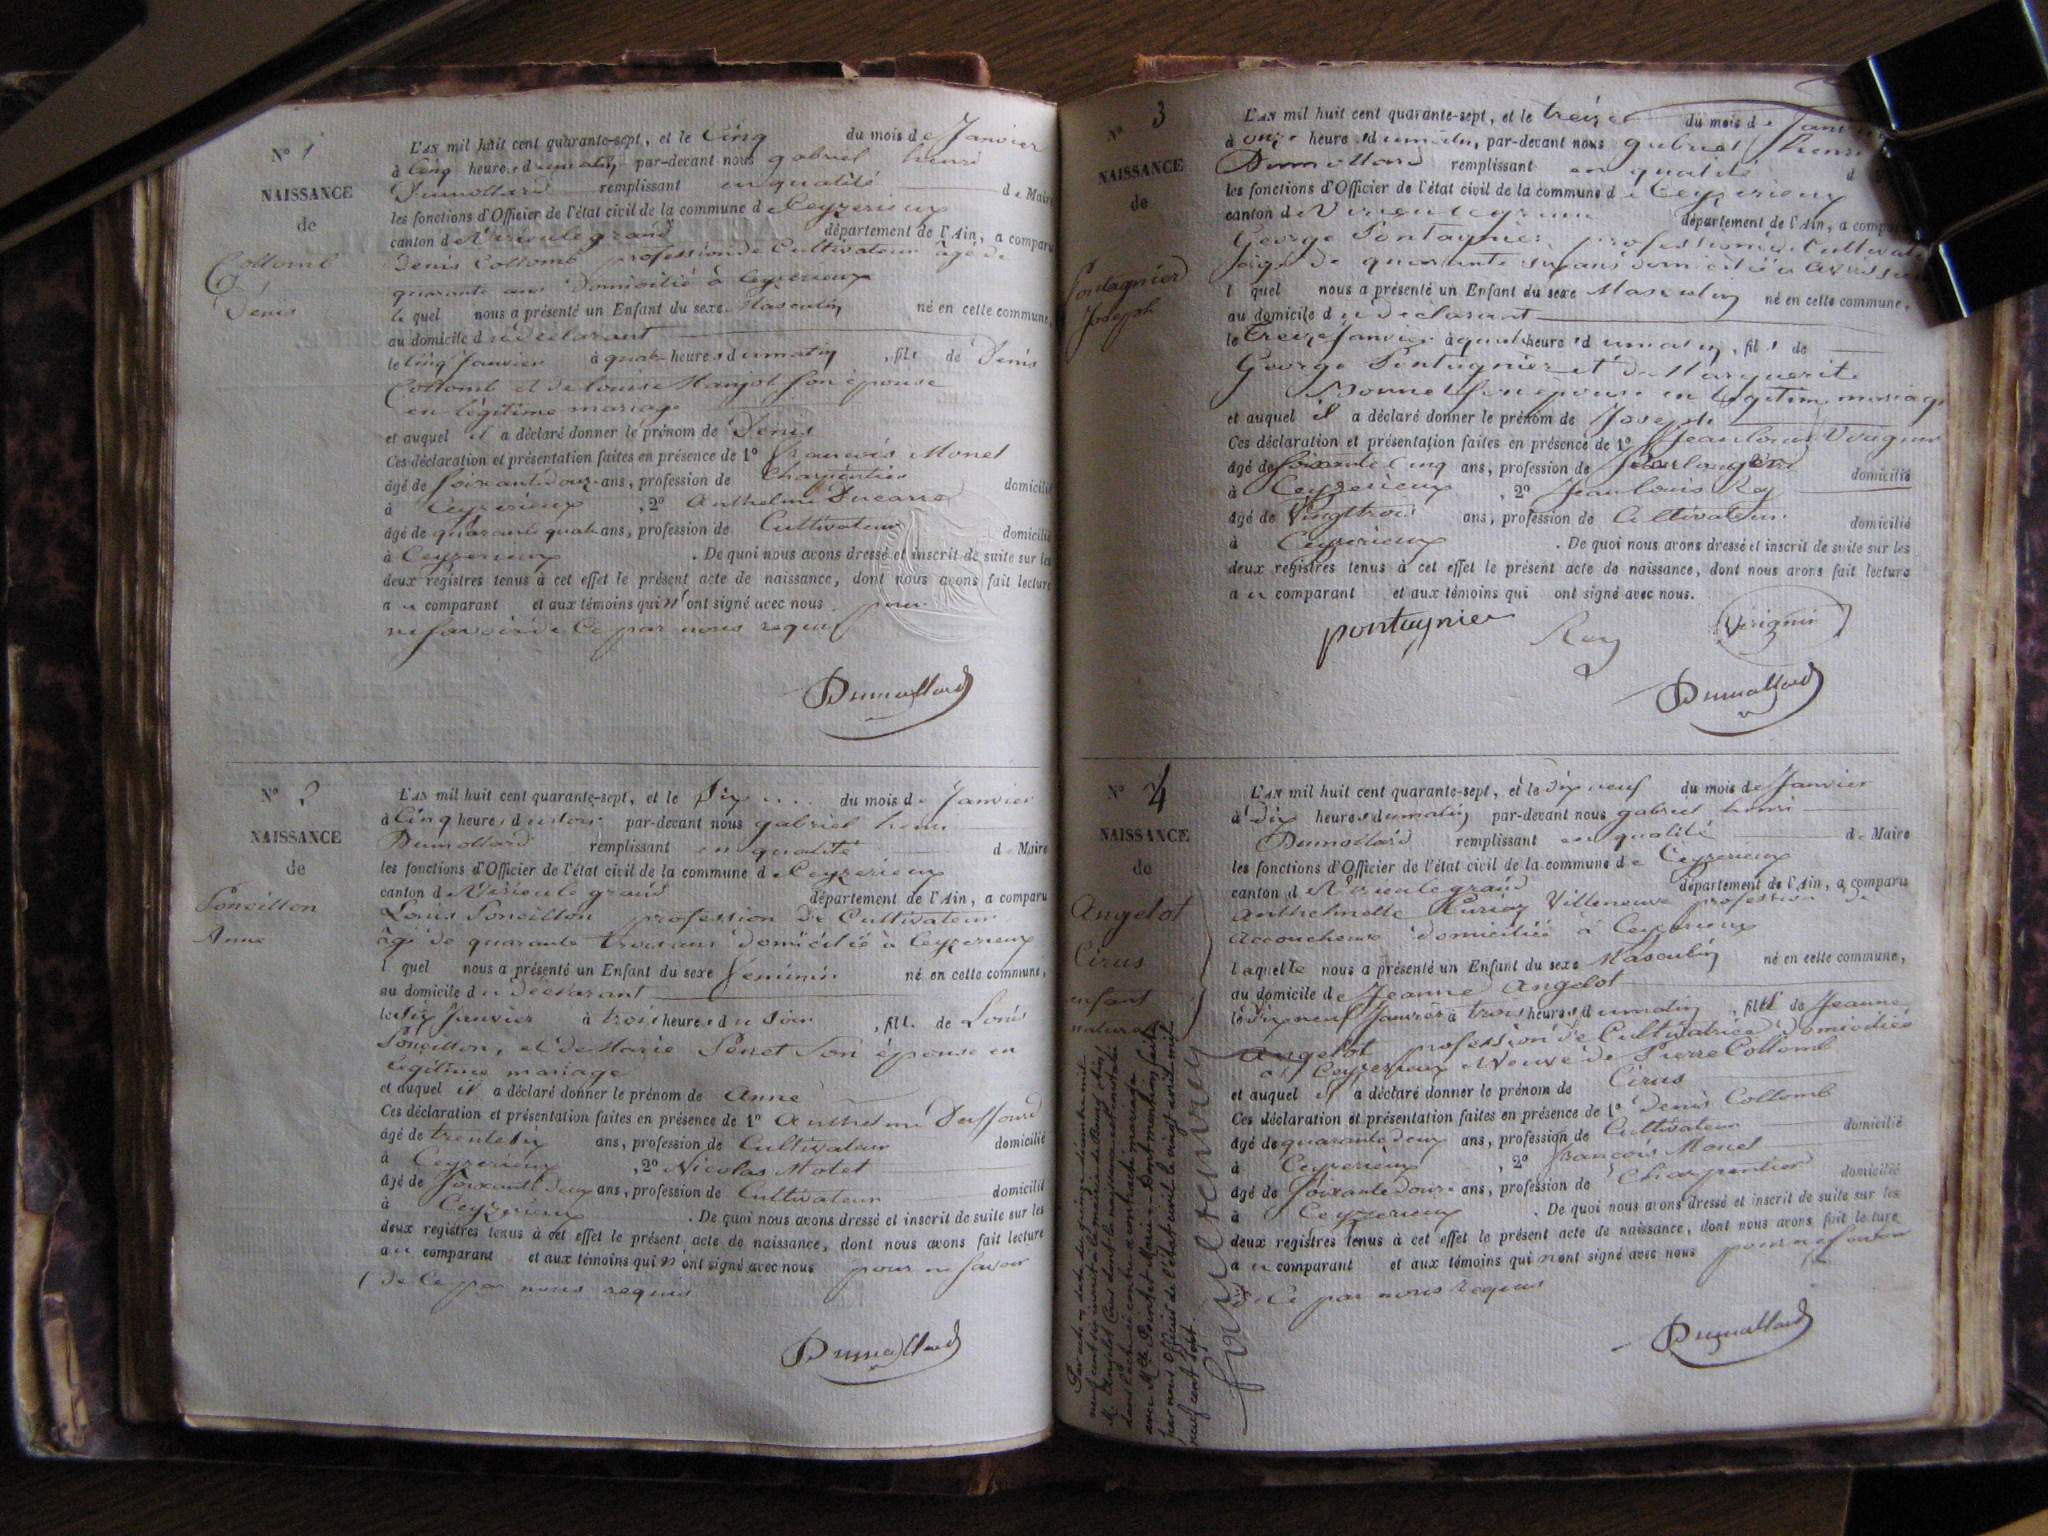 N° 1
NAISSANCE
de
Collomb
Denis
L'AN mil huit cent quarante-sept, et le Cinq du mois de Janvier
à Cinq heures du matin par-devant nous gabriel henri
Dumollard remplissant en qualité de Maire
les fonctions d'Officier de l'état civil de la commune de Ceyzerieux
canton de Virieu le grand département de l'Ain, a comparu
Denis Collomb profession de Cultivateur âgé de
quarante ans Domicilié à Ceyzerieux
le quel nous a présenté un Enfant du sexe Masculin né en cette commune,
au domicile du Déclarant
le Cinq Janvier à quatre heures du matin, fils de Denis
Collomb et de louise Manjot son épouse
en légitime mariage
et auquel il a déclaré donner le prénom de Denis
Ces déclaration et présentation faites en présence de 1° françois Monet
âgé de soixante douze ans, profession de Charpentier domicilié
à Ceyzerieux, 2° Anthelme Ducarre
âgé de quarante quatre ans, profession de Cultivateur domicilié
à Ceyzerieux. De quoi nous avons dressé et inscrit de suite sur les
deux registres tenus à cet effet le présent acte de naissance, dont nous avons fait lecture
au comparant et aux témoins qui n'ont signé avec nous pour
ne savoir de Ce par nous requis
Dumollard
N° 2
NAISSANCE
de
Poncillon
Anne
L'AN mil huit cent quarante-sept, et le Six du mois de Janvier
à Cinq heures du soir par-devant nous gabriel henri
Dumollard remplissant en qualité de Maire
les fonctions d'Officier de l'état civil de la commune de Ceyzerieux
canton de Virieu le grand département de l'Ain, a comparu
Louis Poncillon profession de Cultivateur
âgé de quarante trois ans domicilié à Ceyzerieux
l quel nous a présenté un Enfant du sexe féminin né en cette commune,
au domicile du Déclarant
le Six Janvier à trois heures du Soir, fille de Louis
Poncillon, et de Marie Perret Son épouse en
légitime mariage
et auquel il a déclaré donner le prénom de Anne
Ces déclaration et présentation faites en présence de 1° Anthelme Duffourd
âgé de trente six ans, profession de Cultivateur domicilié
à Ceyzerieux, 2° Nicolas Motet
âgé de soixante deux ans, profession de Cultivateur domicilié
à Ceyzerieux. De quoi nous avons dressé et inscrit de suite sur les
deux registres tenus à cet effet le présent acte de naissance, dont nous avons fait lecture
au comparant et aux témoins qui n'ont signé avec nous pour ne savoir
de Ce par nous requis
Dumollard
N° 3
NAISSANCE
de
Pontagnier
Joseph
L'AN mil huit cent quarante-sept, et le treize du mois de Janvier
à onze heures du matin, par-devant nous gabriel henri
Dumollard remplissant en qualité d
les fonctions d'Officier de l'état civil de la commune de Ceyzerieux
canton de Virieu le grand département de l'Ain, a comparu
George Pontagnier profession de Cultivateur
âgé de quarante ans domicilié à
l quel nous a présenté un Enfant du sexe Masculin né en cette commune,
au domicile du Déclarant
le treize Janvier à quatre heures du matin, fils de
George Pontagnier et de Marguerite
Monnet son épouse en légitime mariage
et auquel il a déclaré donner le prénom de Joseph
Ces déclaration et présentation faites en présence de 1° Jean louis Virignin
âgé de soixante Cinq ans, profession de domicilié
à Ceyzerieux, 2° Jean louis Rey
âgé de Vingt trois ans, profession de Cultivateur domicilié
à Ceyzerieux. De quoi nous avons dressé et inscrit de suite sur les
deux registres tenus à cet effet le présent acte de naissance, dont nous avons fait lecture
au comparant et aux témoins qui ont signé avec nous.
pontagnier Rey Virignin
Dumollard
N° 4
NAISSANCE
de
Angelot
Cirus
enfant
naturel
L'AN mil huit cent quarante-sept, et le dix neuf du mois de Janvier
à Dix heures du matin par-devant nous gabriel henri
Dumollard remplissant en qualité de Maire
les fonctions d'Officier de l'état civil de la commune de Ceyzerieux
canton de Virieu le grand département de l'Ain, a comparu
Anthelmette Villeneuve profession de
accoucheuse domiciliée à Ceyzerieux
laquelle nous a présenté un Enfant du sexe Masculin né en cette commune,
au domicile de Jeanne Angelot
le dix neuf Janvier à trois heures du matin, fils de Jeanne
Angelot profession de Cultivatrice domiciliée
à Ceyzerieux Veuve de Pierre Collomb
et auquel il a déclaré donner le prénom de Cirus
Ces déclaration et présentation faites en présence de 1° Denis Collomb
âgé de quarante deux ans, profession de Cultivateur domicilié
à Ceyzerieux, 2° françois Monet
âgé de soixante douze ans, profession de Charpentier domicilié
à Ceyzerieux. De quoi nous avons dressé et inscrit de suite sur les
deux registres tenus à cet effet le présent acte de naissance, dont nous avons fait lecture
au comparant et aux témoins qui n'ont signé avec nous pour ne savoir
de Ce par nous requis
Dumollard
Par acte en date du quinze décembre mil
neuf cent six inscrit à la mairie de
M. Angelot Cirus dont la naissance est constatée
dans l'acte ci-contre a contracté mariage
avec Mlle Marie. Dont mention faite
par nous Officier de l'état civil le vingt avril mil
neuf cent sept.